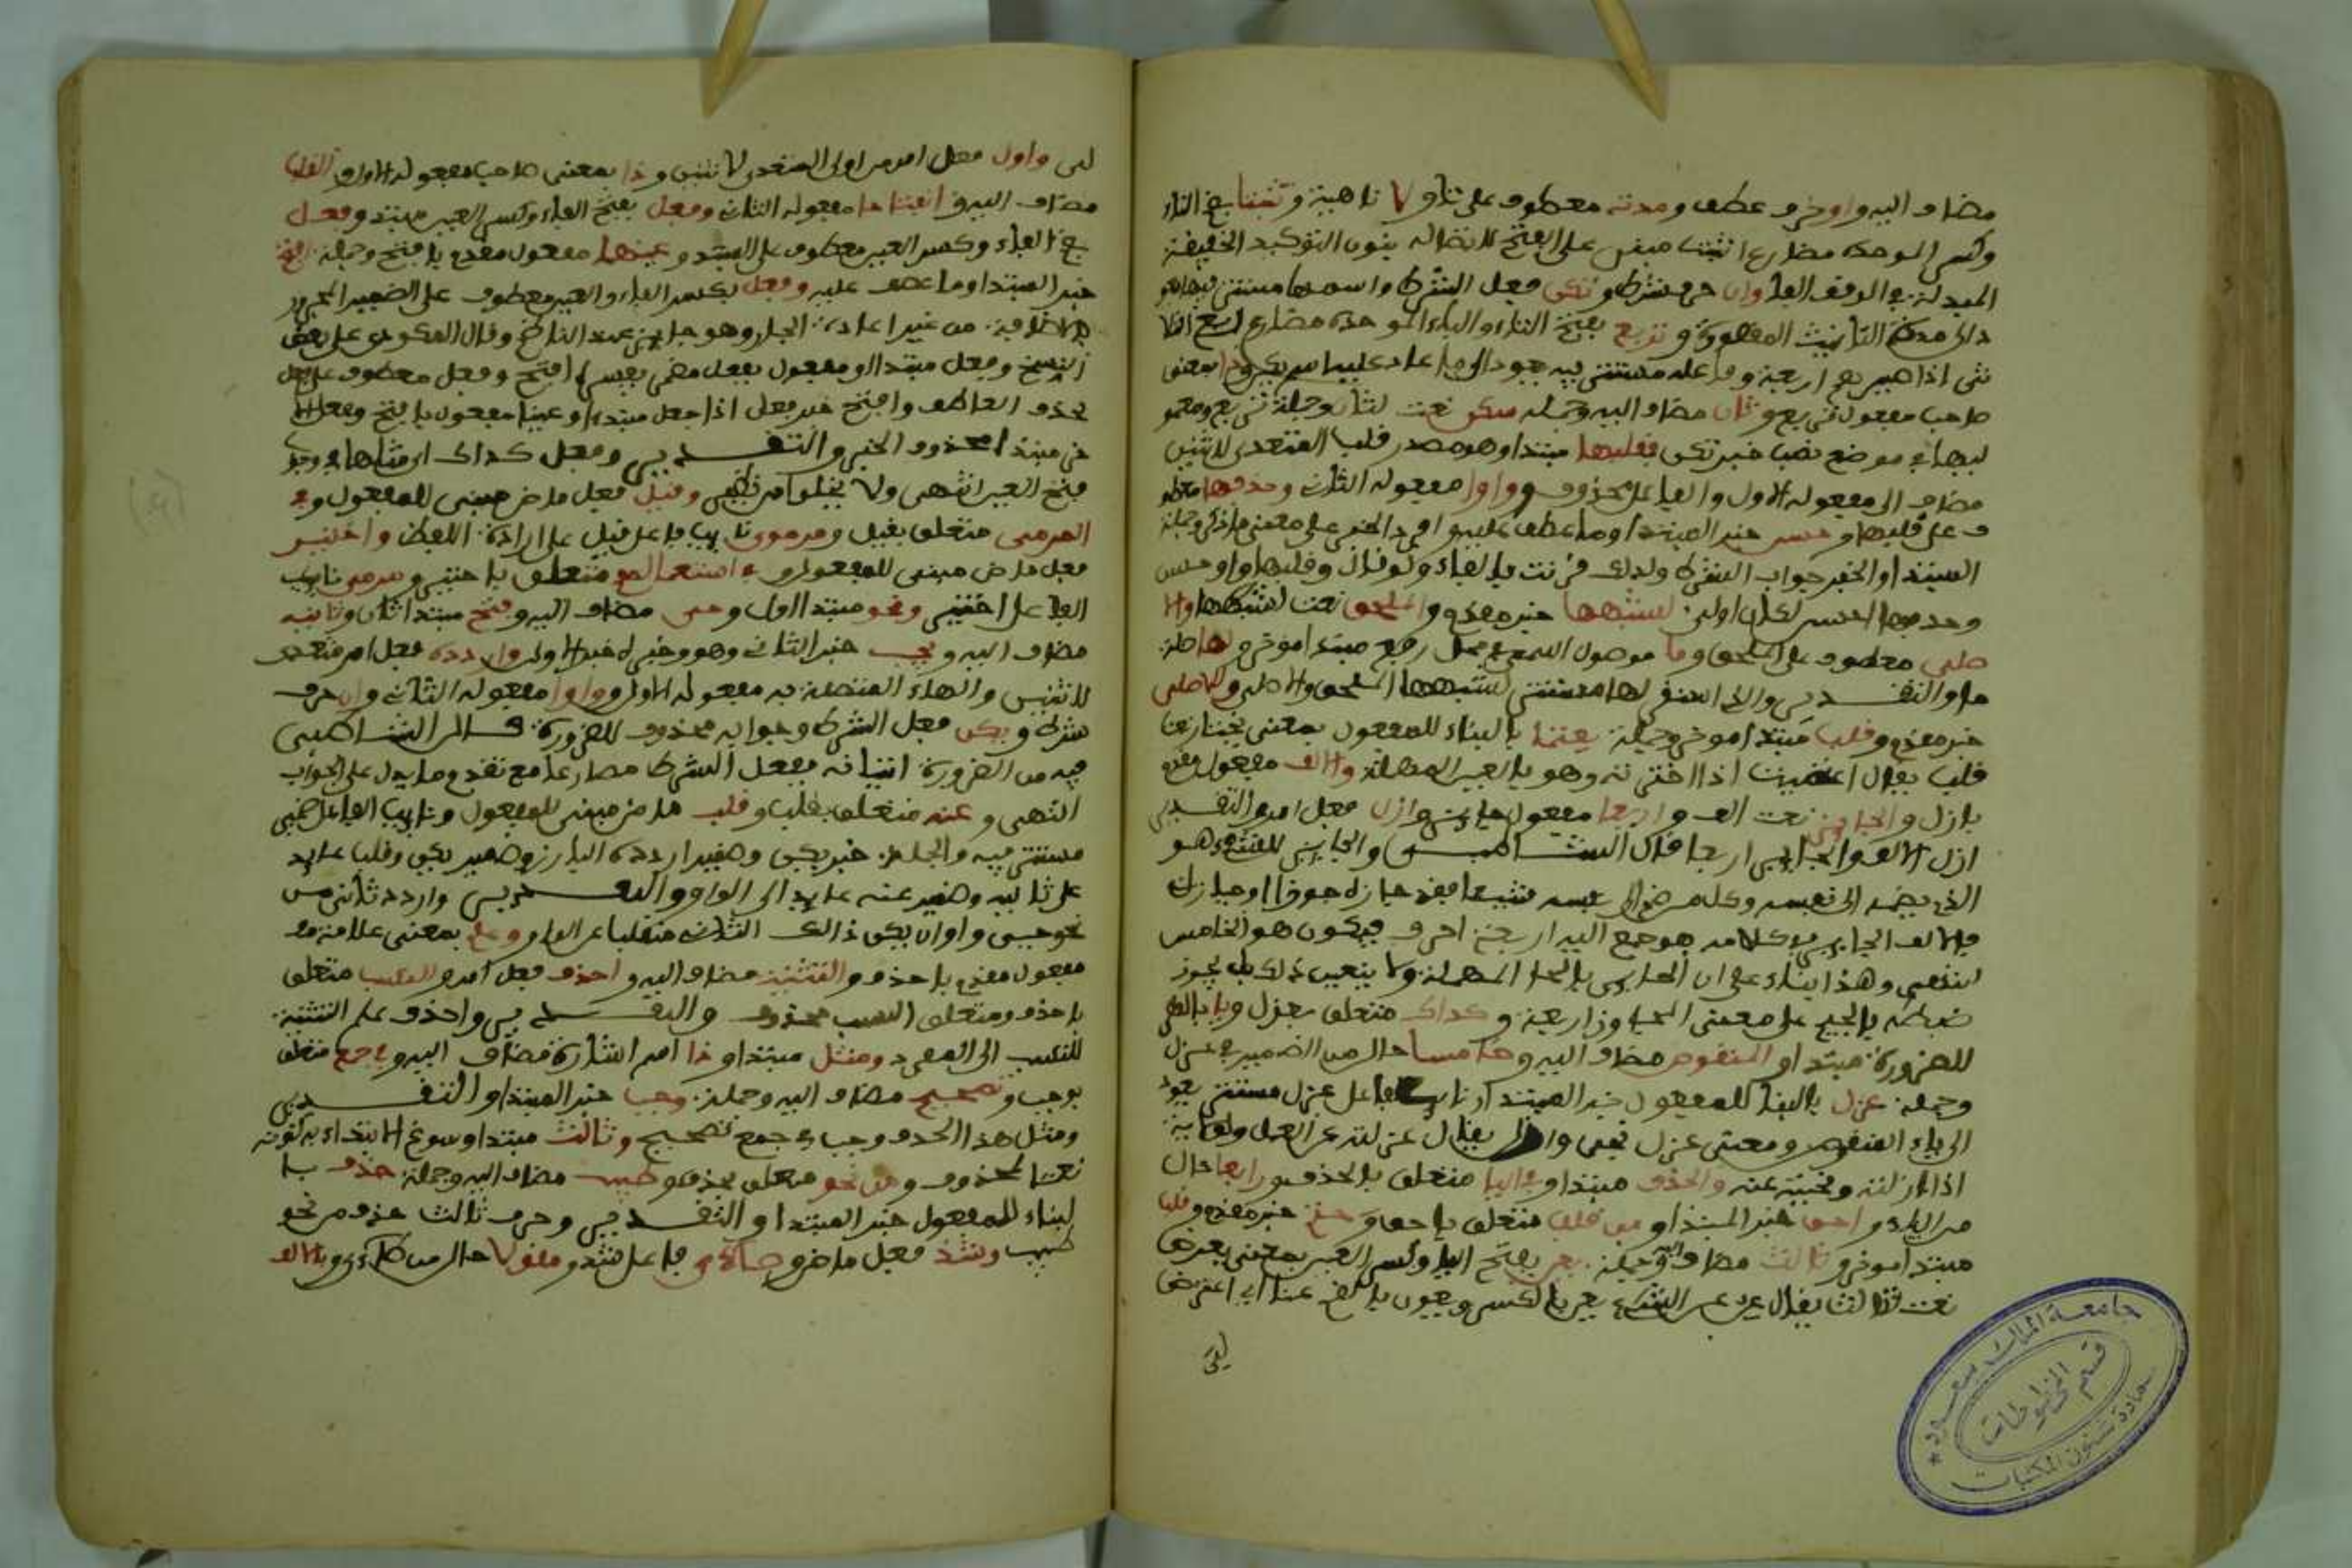 مضاف اليه واوخر عطف ومدته معطوف على تا ولا تاهية وتثبتا بضم التاء
وكسر الموحدة مضارع اثبت مبني على الفتح لاتصاله بنون التوكيد الخفيفة
المبدلة في الوقف الفا وان حرف شرط وتكن فعل الشرط واسمها مستتر فيها هو
الى مدة التانيث المقصورة وتربع بفتح التاء والباء الموحدة مضارع اربع
اذا صير اربعة وفاعله مستتر فيه يعود الى ما عاد عليه اسم تكن وذا بمعنى
صاحب مفعول تربع وثان مضاف اليه وجملة سكن نعت لثان وجملة تربع ومعمو
ليها في موضع نصب خبر تكن فقلبها مبتدا وهو مصدر قلب المتعدي لاثنين
مضاف الى مفعوله الاول والفاعل محذوف وواوا مفعوله الثاني وحذفها معطو
ف على قلبها وحسن خبر المبتدا وما عطف عليه وافرد الخبر على معنى ما ذكر وجملة
المبتدا والخبر جواب الشرط ولذلك قرنت بالفاء ولو قال وقلبها واوا حسن
وحذفها احسن لكان اولى لشبهها خبر مقدم والملحق نعت لشبهها والا
صلي معطوف على الملحق وما موصول اسمي في محل رفع مبتدا موخر ولها صلة
ما والتقدير والذي استقر لها مستقر لشبهها الملحق والاصلي وللاصلي
خبر مقدم وقلب مبتدا موخر وجملة يعتما بالبناء للمفعول بمعنى يختار نعت
قلب يقال اعتميت اذا اخترته وهو بالعين المهملة والالف مفعول مقدم
بازل والجايز نعت الف واربعا مفعول جايز وازل فعل امر والتقدير
ازل الالف الجايز اربعا قال الشاطبي والجايز للشيء هو
الذي يضمه الى نفسه وكل من ضم الى نفسه شيئا فقد حازه حوزا وحيازة
فالالف الجايز في كلامه هو جمع اليه اربعة احرف فيكون هو الخامس
انتهى وهذا بناء على ان الحايز بالحا المهملة ولا يتعين ذلك بل يجوز
ضبطه بالجيم على معنى المجاوز اربعة وكذاك متعلق بعزل ويا بالقصر
للضرورة مبتدا والمنقوص مضاف اليه وخامسا حال من الضمير في عزل
وجملة عزل بالبنا للمفعول خبر المبتدا ونايب الفاعل عزل مستتر يعود
الى ياء المنقوص ومعنى عزل نحي وازيل يقال عزلته عن العمل والولاية
اذا ازلته ونحيته عنه والحذف مبتدا وفي اليا متعلق بالحذف ورابعا حال
من الياء واحق خبر المبتدا ومن قلب متعلق باحق وحتم خبر مقدم وقلب
مبتدا موخر وثالث مضاف اليه وجملة يعن بفتح اليا وكسر العين بمعنى يعرض
نعت ثالث يقال عن عن الشيء يعن بالكسر ويعن بالضم عننا اي اعترض
لى واول فعل امر من اولى المتعدي لاثنين وذا بمعنى صاحب مفعوله الاول والقلب
مضاف اليه وانفتاحا مفعوله الثاني وفعل بفتح الفاء وكسر العين مبتدا وفعل
بضم الفاء وكسر العين معطوف على المبتدا وعينهما مفعول مقدم بافتح وجملة افتح
خبر المبتدا وما عطف عليه وفعل بكسر الفاء والعين معطوف على الضمير المجرور
بالاضافة من غير اعادة الجار وهو جايز عند الناظم وقال المكودي على بعض
النسخ وفعل مبتدا او مفعول بفعل مضمر يفسره افتح وفعل معطوف على فعل
بحذف العاطف وافتح خبر فعل اذا جعل مبتدا وعينا مفعول بافتح وفعل الا
خر مبتدا محذوف الخبر والتقدير وفعل كذاك اي مثلها في وجوب
فتح العين انتهى ولا يخلوا من تكلف وقيل فعل ماض مبني للمفعول وفي
المرمي متعلق بقيل ومرموي نايب فاعل قيل على ارادة اللفظ واختير
فعل ماض مبني للمفعول وفي استعمالهم متعلق باختير ومرمي نايب
الفاعل اختير ونحو مبتدا اول وحي مضاف اليه وفتح مبتدا ثان وثانيه
مضاف اليه ويجب خبر الثاني وهو وخبره خبر الاول واردده فعل امر متعد
لاثنين والهاء المتصلة به مفعوله الاول وواوا مفعوله الثاني وان حرف
شرط ويكن فعل الشرط وجوابه محذوف للضرورة قال الشاطبي
فيه من الضرورة اتيانه بفعل الشرط مضارعا مع تقدم ما يدل على الجواب
انتهى وعنه متعلق بقلب وقلب ماض مبني للمفعول ونايب الفاعل ضمير
مستتر فيه والجملة خبر يكن وضمير اردده البارز وضمير يكن وقلب عايد
على ثانيه وضمير عنه عايد الى الواو والتقدير واردد ثاني من
نحو حي واوا ان يكن ذلك الثاني منقلبا عن الواو وعلم بمعنى علامة
مفعول مقدم باحذف والتثنية مضاف اليه واحذف فعل امر وللنسب متعلق
باحذف ومتعلق النسب محذوف والتقدير واحذف علم التثنية
للنسب الى المفرد ومثل مبتدا وذا اسم اشارة مضاف اليه وفي جمع متعلق
بوجب وتصحيح مضاف اليه وجملة وجب خبر المبتدا والتقدير
ومثل هذا الحذف وجب في جمع تصحيح وثالث مبتدا وسوغ الابتداء به كونه
نعتا لمحذوف ومن نحو متعلق بحذف وطيب مضاف اليه وجملة حذف با
لبناء للمفعول خبر المبتدا والتقدير وحرف ثالث حذف من نحو
طيب وشذ فعل ماض وطاءي فاعل شذ ومقولا حال من طاءي وبالالف
جامعة الملك سعود
قسم المخطوطات
عمادة شئون المكتبات